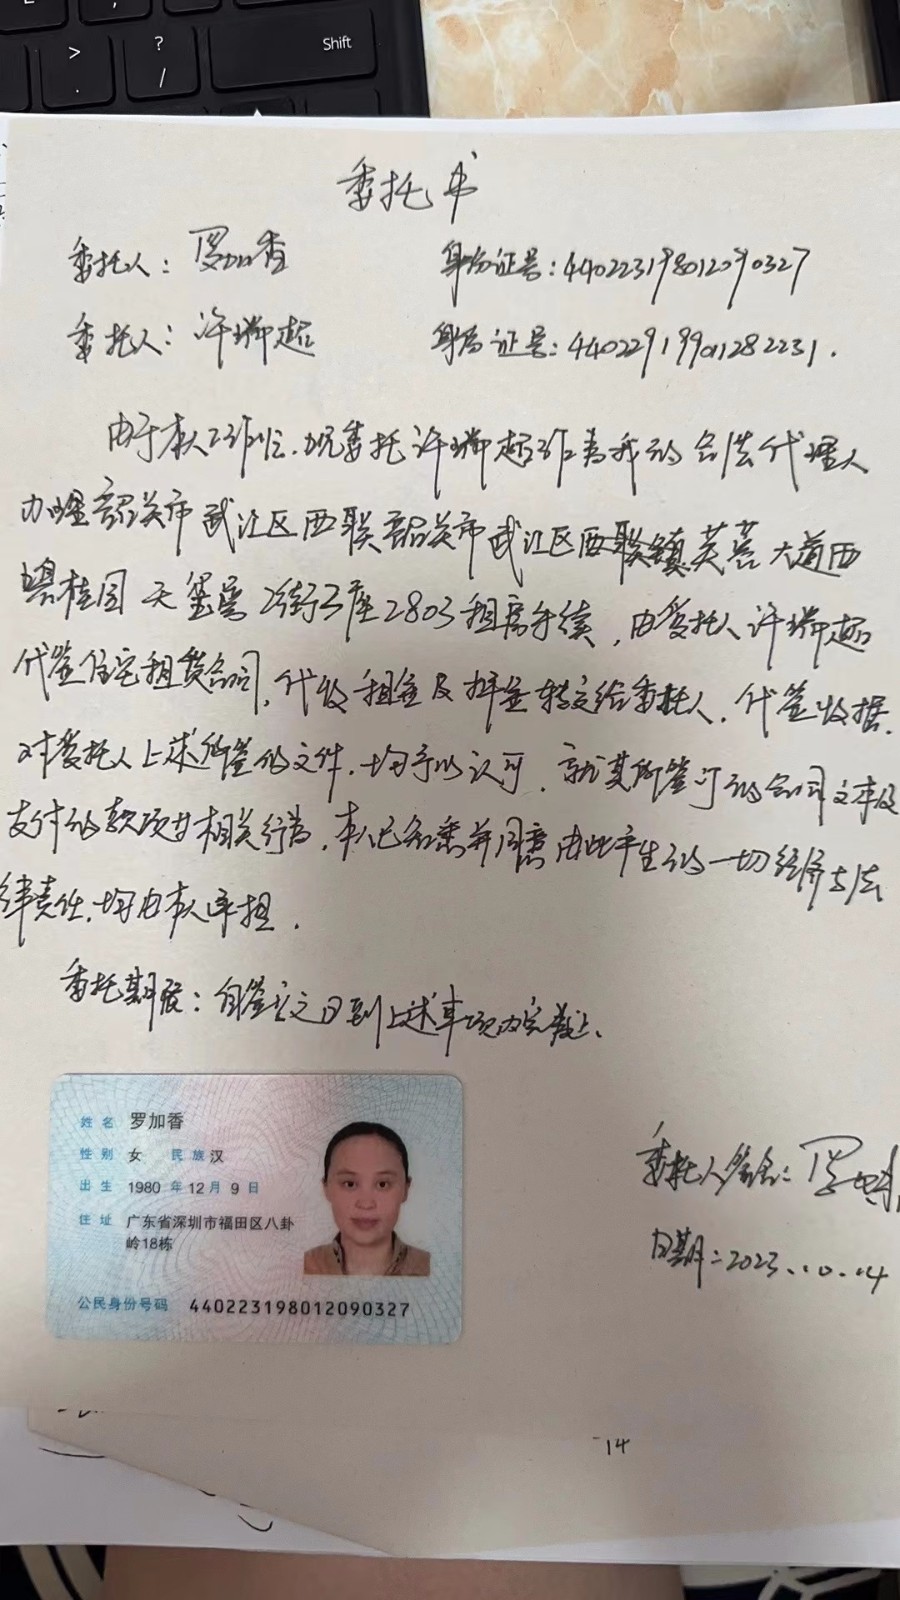 Shift
>
.
?
/
委托书
委托人：罗加香 身份证号：440223198012090327
委托人：许瑞超 身份证号：440229199011282231.
由于本人工作忙.现委托许瑞超作为我的合法代理人
办理韶关市武江区西联韶关市武江区西联镇芙蓉大道西
碧桂园天玺 街3座2803租房手续，由受托人许瑞超
代签住宅租赁合同，代收租金及押金转交给委托人.代签收据.
对委托人上述所签的文件.均予以认可.就其所签订的合同文本及
支付的款项的相关行为，本人已知悉并同意由此产生的一切经济与法
律责任.均由本人承担.
委托期限：自签订之日到上述事项办完截止.
姓名 罗加香
性别 女 民族 汉
出生 1980 年 12 月 9 日
住址 广东省深圳市福田区八卦
岭18栋
公民身份号码 440223198012090327
委托人签名：罗加香
日期：2023.10.14
-14